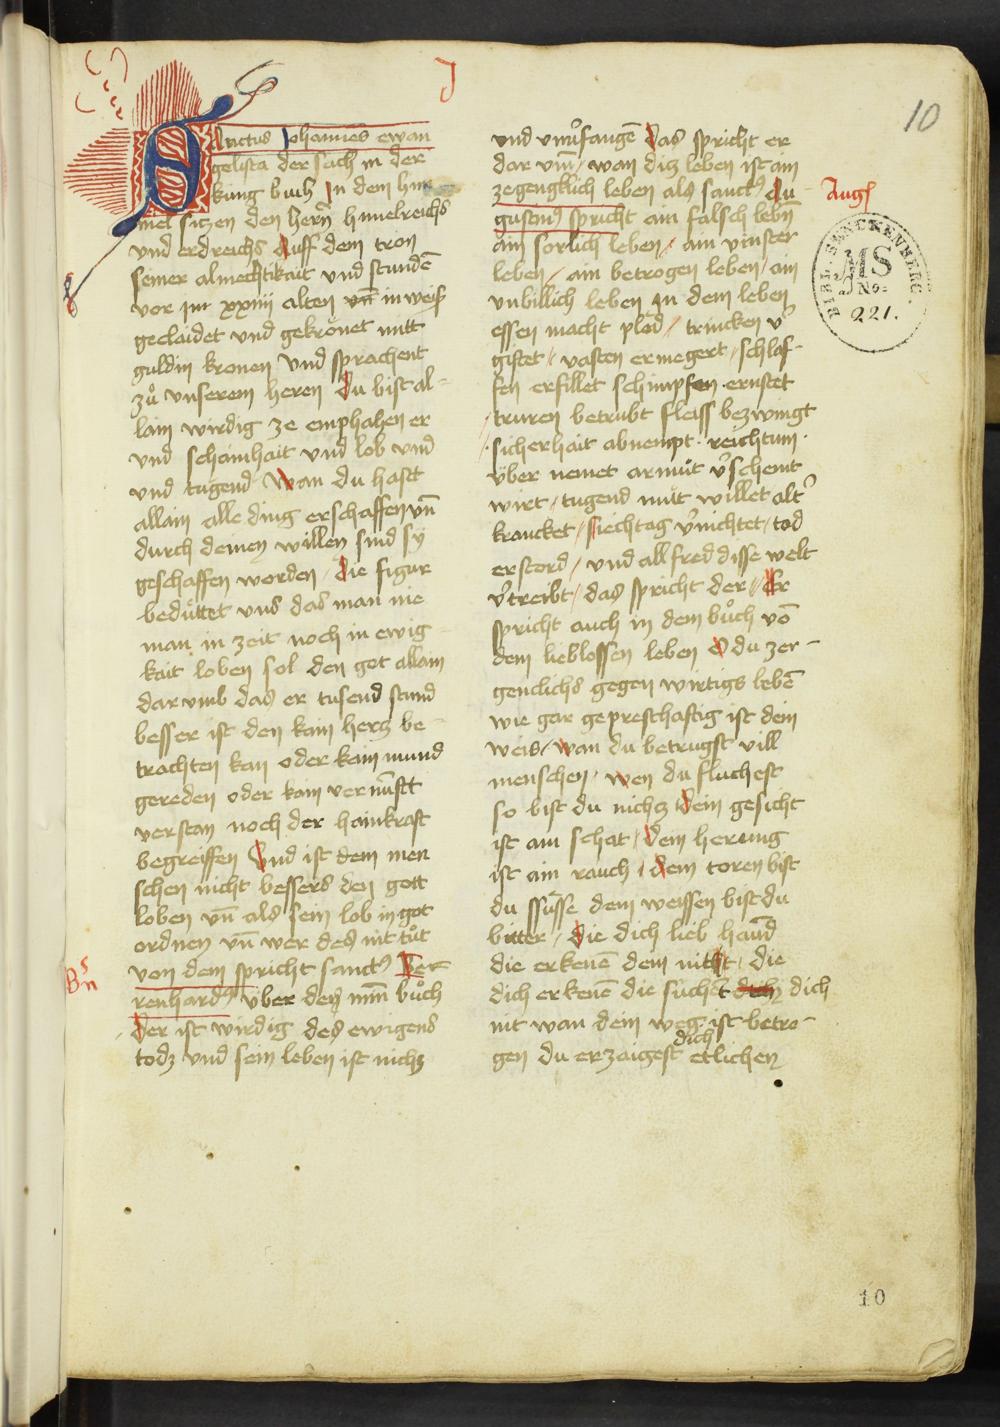 J
10
Sanctus Johannes ewan
gelista der sach in der
kung buch In dem him
mel sitzen den hern himelreichs
und erdreichs Auff dem tron
seiner almechtikait und stunden
vor im xxiiij alten vn in weiss
geclaidet und gekrönet mitt
guldin kronen Und sprachent
zů unserem heren Du bist al-
lain wirdig ze emphahen er
und schainhait und lob und
und tugend Wan du hast
allain alle ding erschaffen vn
durch deinen willen sind sy
geschaffen worden / Die figur
bedüttet uns das man nie
man in zeit noch in ewig
kait loben sol den got allain
dar umb das er tusend stund
besser ist den kain hertz be-
trachten kan oder kain mund
gereden oder kain vernunfft
verstan noch der hainkraft
begreiffen Und ist dem men
schen nicht bessers den gott
loben vn als sein lob in got
ordnen vn wer des nit tůt
von dem spricht sanctus Ber
renhardus über den minn bůch
Der ist wirdig des ewigens
todz und sein leben ist nichtz
Bn
und umfangen Das spricht er
dar um / wan ditz leben ist ain
zergengklich leben als sanctus Au
gustinus spricht ain falsch leben
ain sorlich leben / ain vinster
leben / ain betrogen leben / ain
unbillich leben In dem leben
essen macht plöd / trincken ver
giftet / vasten ermegert / schlaf-
fen erfillet schimpfen ernstet
truren betrubt fleiss bezwingt
sicherhait abnempt reichtum
über nemet armut verschemt
wirt / tugend mut willet alter
krancket / siechtag vernichtet / tod
erstord / und all fred disse welt
vertreibt / das spricht der / Er
spricht auch in dem bůch von
dem lieblossen leben O du zer-
genclichs gegen wirtigs leben
wie gar gepresthaftig ist dein
weis / wan du betrugst vill
menschen / wen du fluchest
so bist du nichtz Dein gesicht
ist ain schat / Dein herung
ist ain rauch / Dem toren bist
du süsse dem weissen bist du
bitter / Die dich lieb hand
die erkenen dein nitt / die
dich erkenen die suchent dich
nit wan dein weg ist betro-
gen du erzaigest dich etlichen
Aug
BIBL. SENCKENBERG.
MS
No:
221.
10